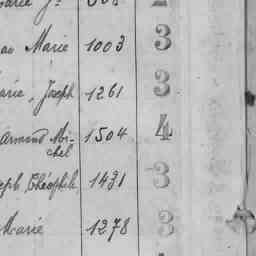 Marie 1003 3
Marie, Joseph 1261 3
Armand Mi- 1504 4
chel
Théophile 1431 3
Marie 1278 3